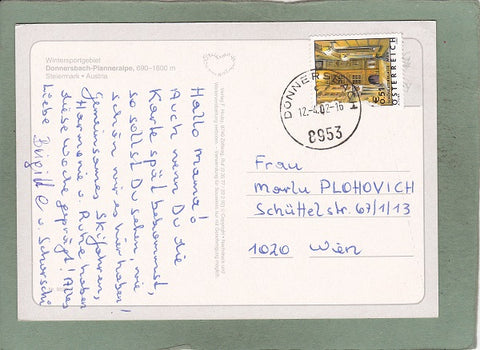 Wintersportgebiet
Donnersbach-Planneralpe, 690–1800 m
Steiermark • Austria
Hallo Mama!
Auch wenn Du die
Karte spät bekommst,
so sollst Du sehen, wie
schön wir es hier haben!
Gemeinsames Skifahren,
Harmonie u. Ruhe haben
diese Woche geprägt! Alles
Liebe Birgitt u. Schorschi
ÖSTERREICH
€ 0,51
DONNERSBACH
12.-4.02-16
8953
Frau
Marlu PLOHOVICH
Schüttelstr. 67/1/13
1020 Wien